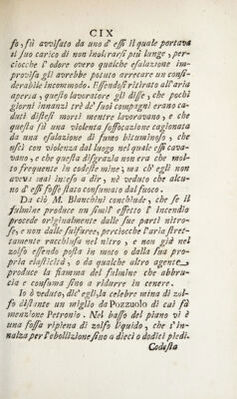 CIX
fo, fu avvisato da uno d' essi il quale portava
il suo carico di non inoltrarsi più lunge, per-
ciocchè l' odore overo qualche esalazione im-
provisa gli avrebbe potuto arrecare un consi-
derabile incommodo. Essendosi ritirato all'aria
aperta, questo lavoratore gli disse, che pochi
giorni innanzi trè de' suoi compagni erano ca-
duti distesi morti mentre lavoravano, e che
questa fù una violenta soffocazione cagionata
da una esalazione di fumo bituminoso, che
uscì con violenza dal luogo nel quale essi cava-
vano, e che questa disgrazia non era che mol-
to frequente in codeste mine; ma ch' egli non
aveva mai inteso a dir, nè veduto che alcu-
no d' essi fosse stato consumato dal fuoco.
Da ciò M. Bianchini conchiude, che se il
fulmine produce un simil effetto l' incendio
procede originalmente dalle sue parti nitro-
se, e non dalle sulfuree, perciocchè l'aria stret-
tamente racchiusa nel nitro, e non già nel
zolfo essendo posta in moto o dalla sua pro-
pria elasticità, o da qualche altro agente
produce la fiamma del fulmine che abbru-
cia e consuma sino a ridurre in cenere.
Io ò veduto, dic' egli, la celebre mina di zol-
fo distante un miglio da Pozzuolo di cui fà
menzione Petronio. Nel basso del piano vi è
una fossa ripiena di zolfo liquido, che s'in-
nalza per l'ebollizione sino a dieci o dodici piedi.
Codesta